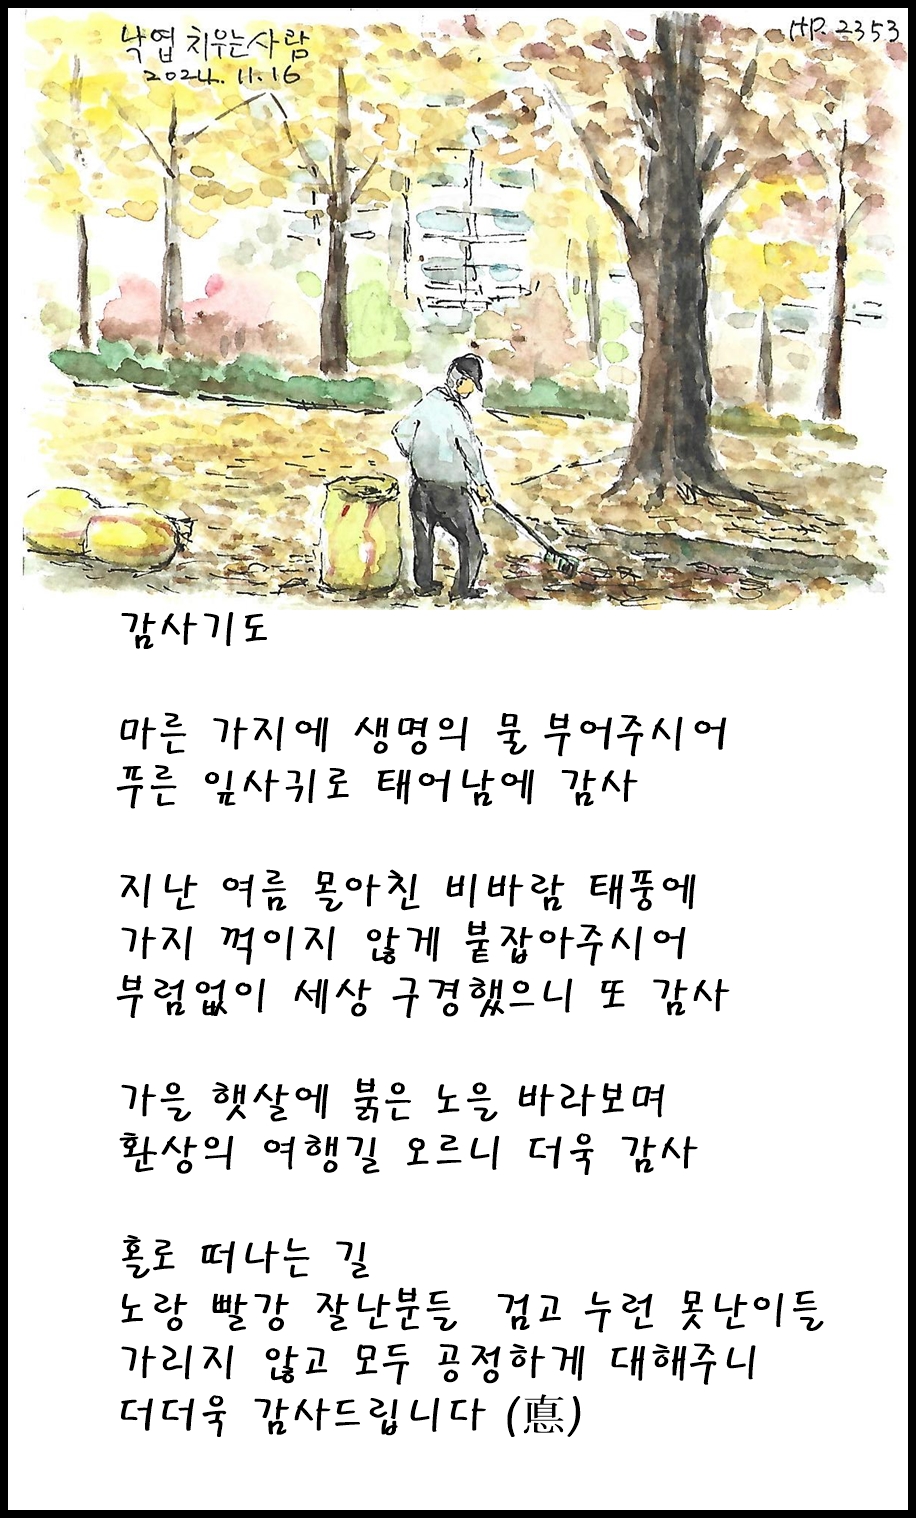 낙엽 치우는사람
2024. 11. 16
HP. 2353
감사기도
마른 가지에 생명의 물 부어주시어
푸른 잎사귀로 태어남에 감사
지난 여름 몰아친 비바람 태풍에
가지 꺽이지 않게 붙잡아주시어
부럼없이 세상 구경했으니 또 감사
가을 햇살에 붉은 노을 바라보며
환상의 여행길 오르니 더욱 감사
홀로 떠나는 길
노랑 빨강 잘난분들 검고 누런 못난이들
가리지 않고 모두 공정하게 대해주니
더더욱 감사드립니다 (悳)